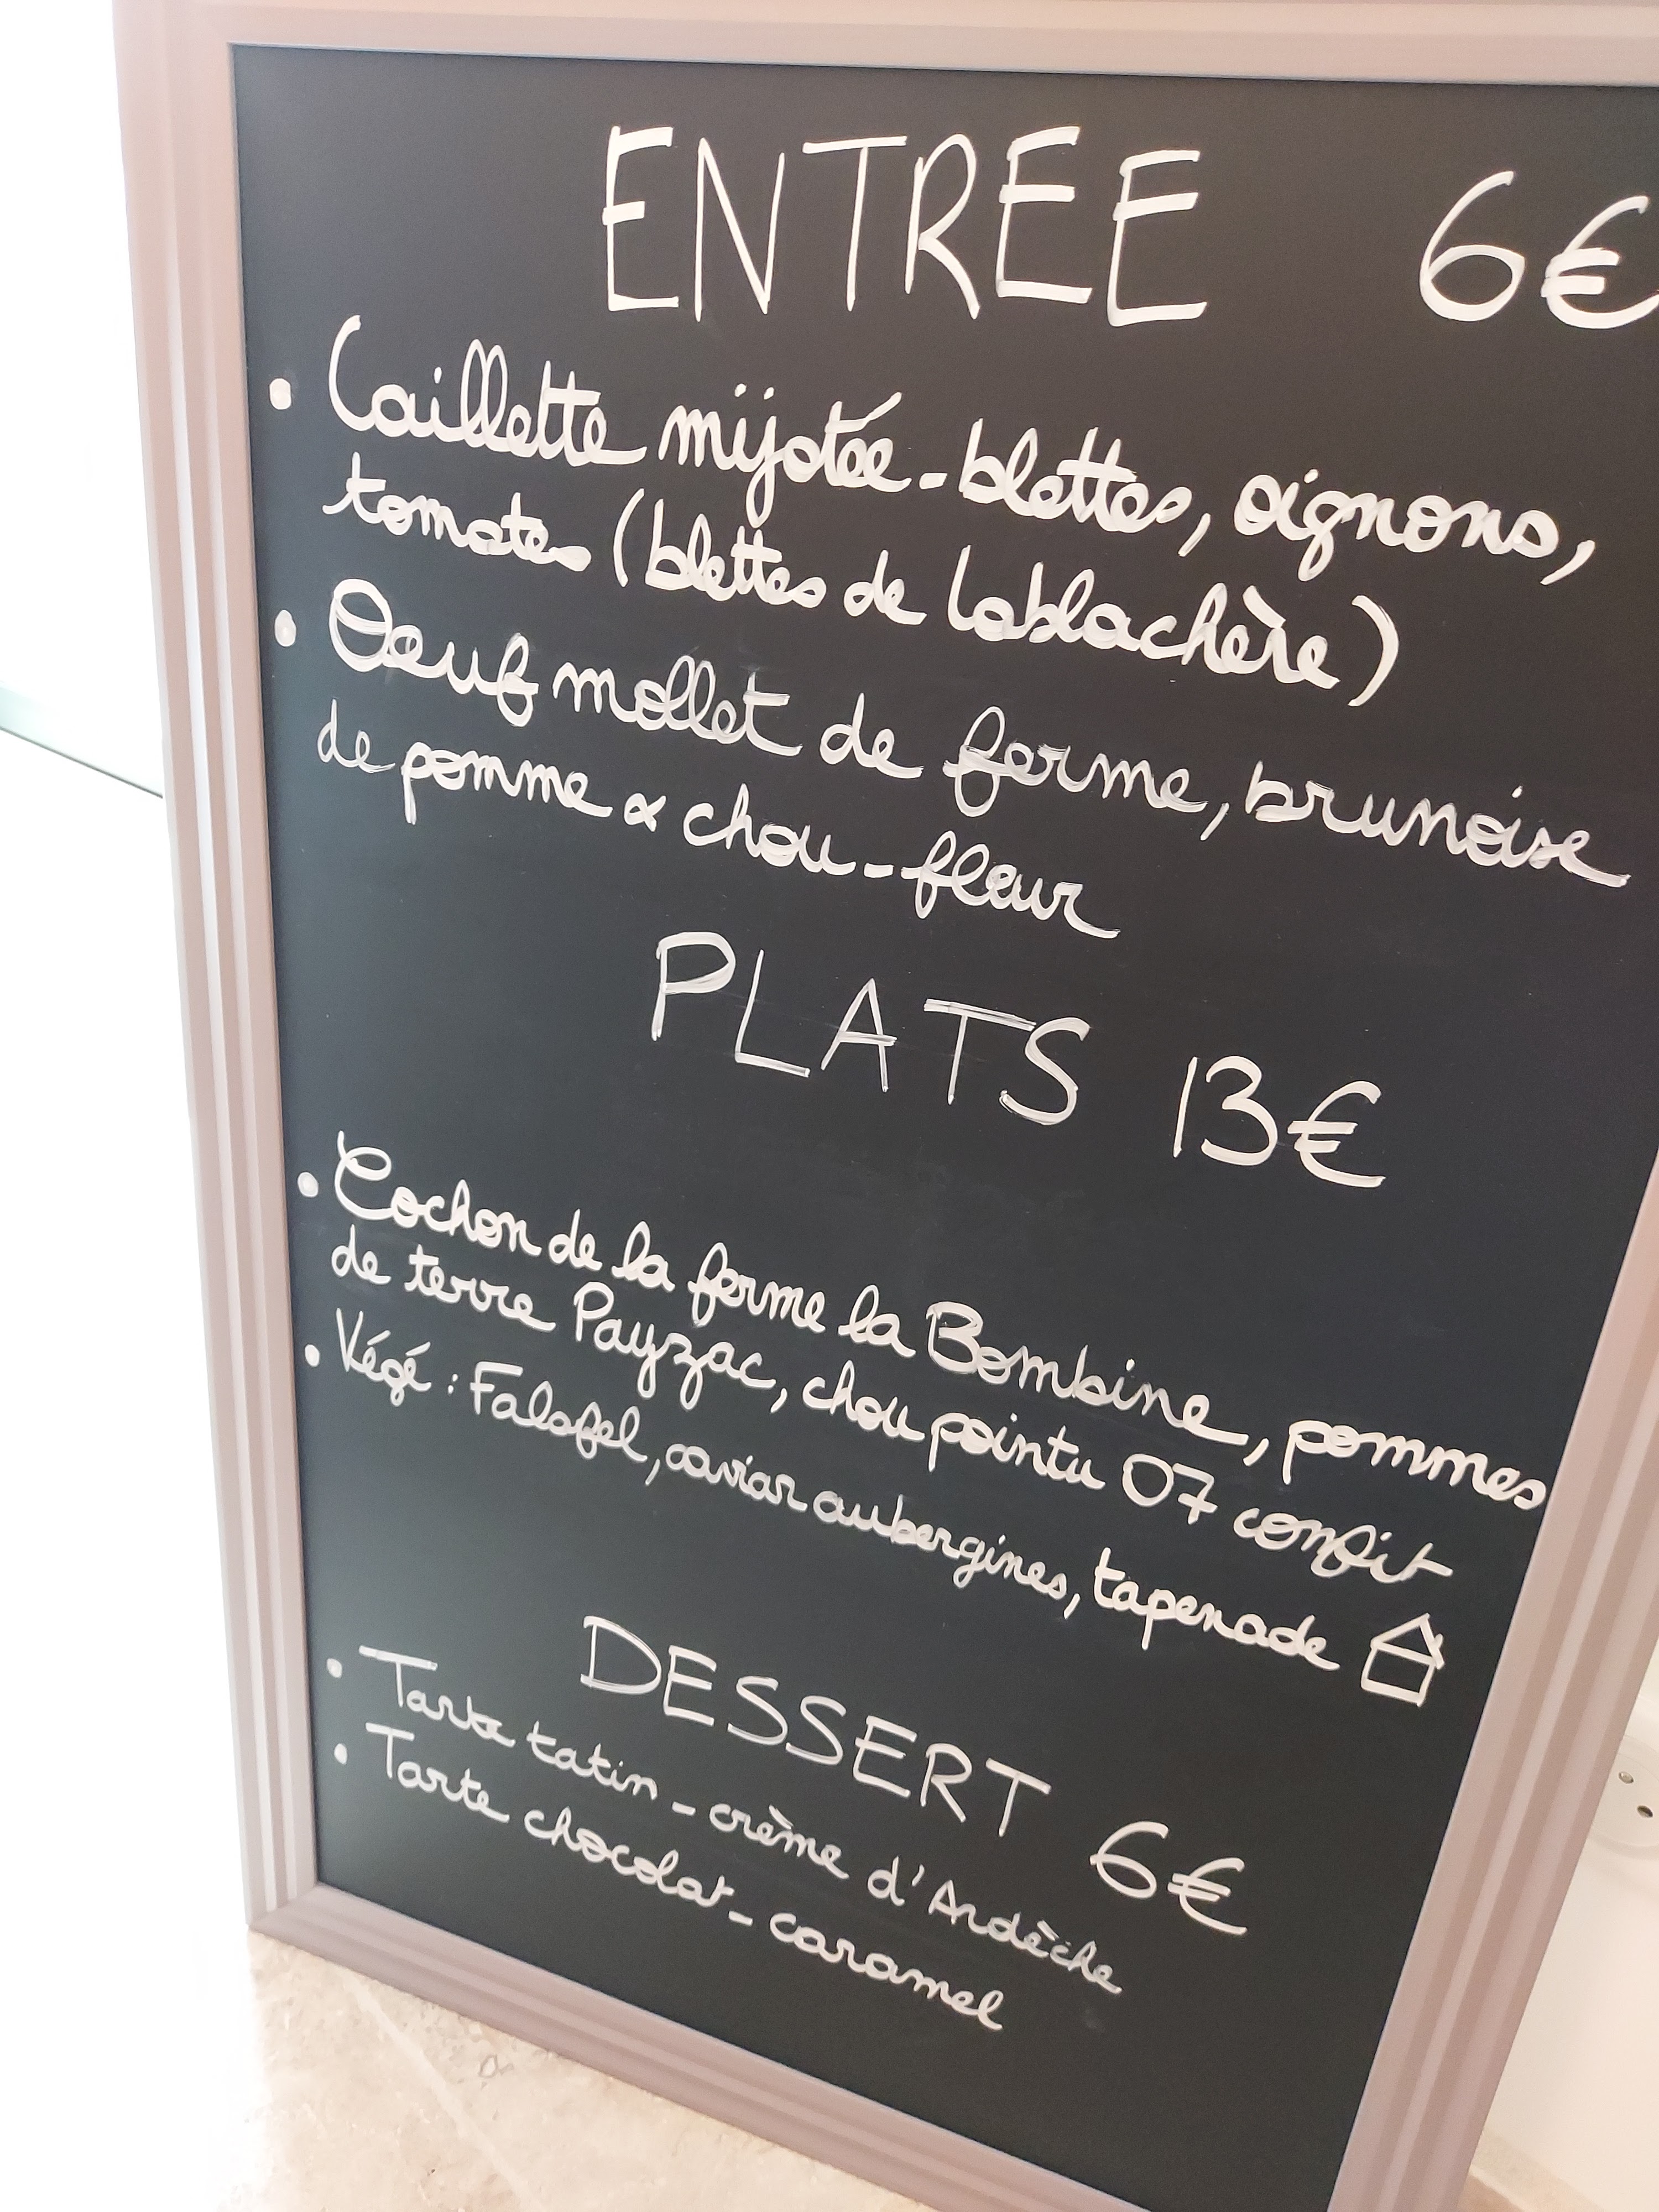 ENTREE 6€
• Caillette mijotée - blettes, oignons,
tomates (blettes de Lablachère)
• Oeuf mollet de ferme, brunoise
de pomme & chou-fleur
PLATS 13€
• Cochon de la ferme la Bombine, pommes
de terre Payzac, chou pointu 07 confit
• Végé : Falafel, caviar aubergines, tapenade
DESSERT 6€
• Tarte tatin - crème d'Ardèche
• Tarte chocolat - caramel